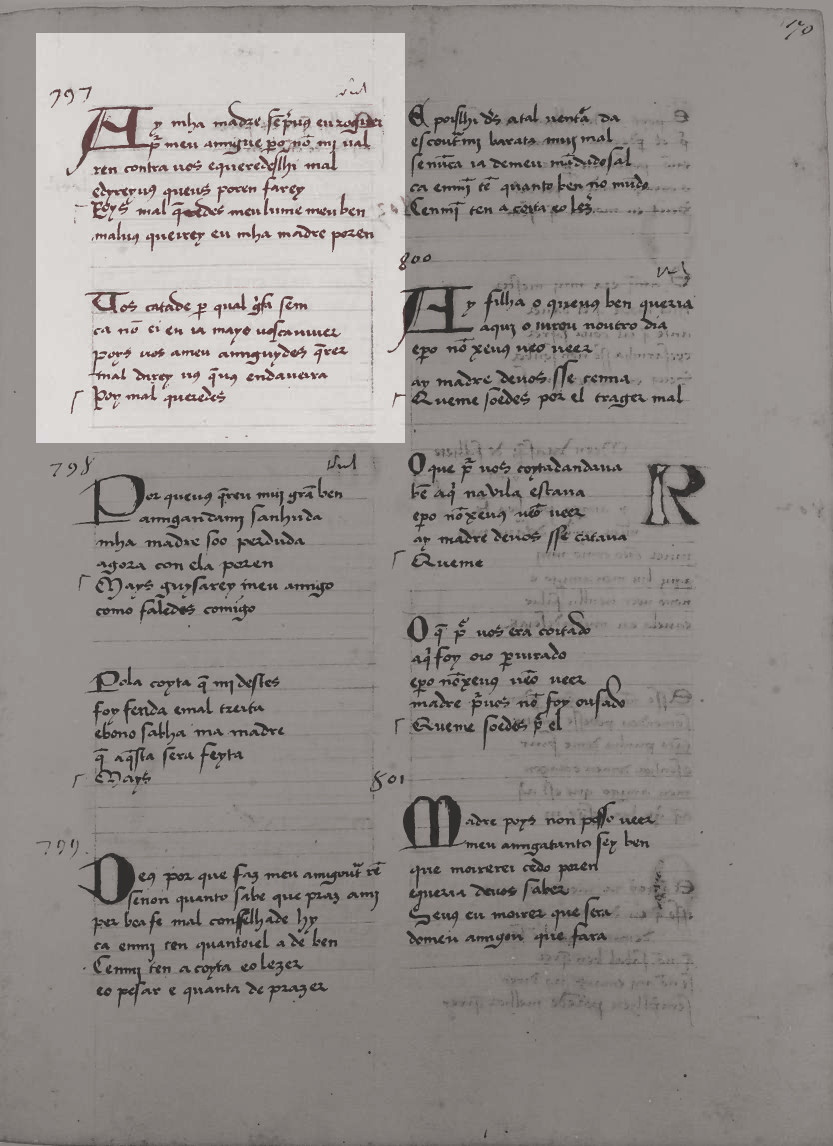 170
797
Ay mha madre sẽpͥuꝯ eu roguei
pͬ meu amigue ꝑo nõ mi ual
ren contra uos equeredeslhi mal
edyreyuꝯ queus poren farey
Poys mal q̃redes meu lume meu ben
maluꝯ querrey eu mha madre poren
Uos catade ꝑ qual
ca nõ ei eu ia mays
poys uos ameu amiguydes q̃rer
mal direy uꝯ q̃uꝯ endauerra
Poy mal queredes
798
Por queuꝯ q̃reu mui grã ben
amigandami sanhuda
mha madre soo perduda
agora con ela poren
Mays guysarey meu amigo
como faledes comigo
Pola coyta q̃ mi destes
foy ferida emal treita
ebeno sabha ma madre
q̃ aq̃sta sera feyta
Mays
799
Deꝯ por que faz meu amigo
senon quanto sabe que praz ami
per boafe mal consselhade hy
ca enmi ten quantoiel a de ben
Cenmi ten a coyta eo lezer
eo pesar e quanta de prazer
E poislhi ds atal uentͬa da
en mui mal
senũca ia demeu mãdadosal
ca enmi tẽ quanto ben no mũdo
Cenmi ten a coyta eo lez̃
800
Ay filha o queuꝯ ben queria
aqui o iurou noutro dia
eꝑo nõ xeuꝯ ueo ueer
ay madre deuos sse temia
Queme soedes por el trager mal
O que pͬ uos coytadandaua
bẽ aqͥ na uila estaua
eꝑo nõ xeuꝯ ueo ueer
ay madre deuos sse cataua
Queme
R
O q̃ pͬ uos era coitado
aqͥ foy oio ꝑ iurado
eꝑo nõ xeuꝯ ueo ueer
madre pͬuos nõ foy ousado
Queme soedes pͬ el
801
Madre poys non posso ueer
meu amigatanto sey ben
que morrerei cedo poren
equeria deuos saber
Seuꝯ eu morrer que sera
domeu amigou que fara